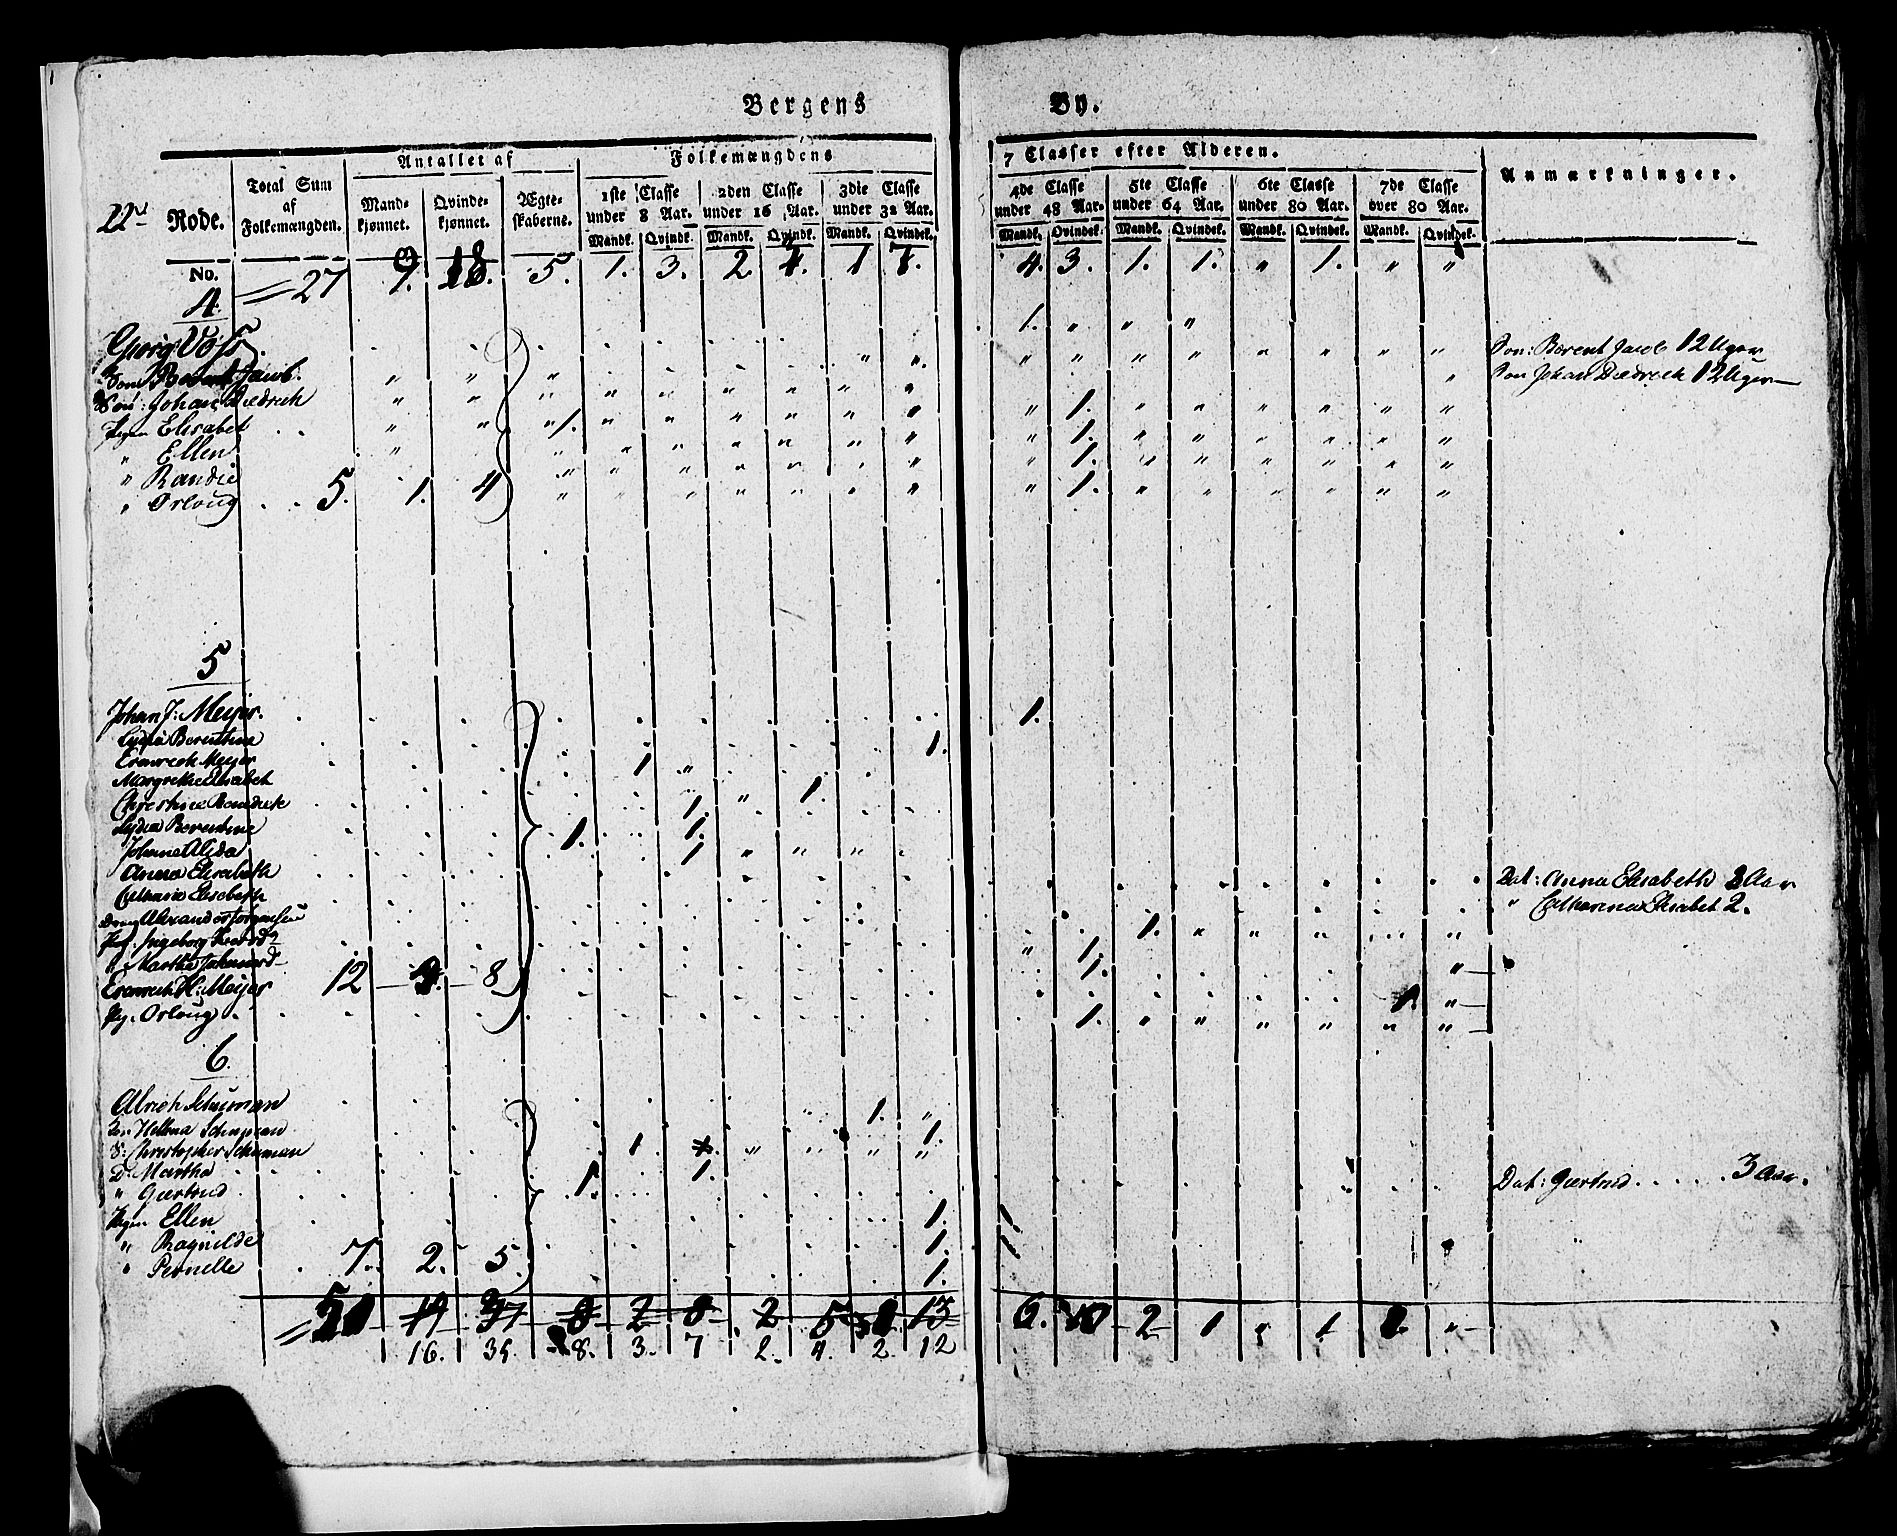 Bergens By.
22d Rode.
Total Sum af Folkemængden.
Antallet af
Mandkjønnet. Qvindekjønnet. Ægteskaberne.
Folkemængdens 7 Classer efter Alderen.
1ste Classe under 8 Aar. 2den Classe under 16 Aar. 3die Classe under 32 Aar. 4de Classe under 48 Aar. 5te Classe under 64 Aar. 6te Classe under 80 Aar. 7de Classe over 80 Aar.
Anmærkninger.
Mandk. Qvindk. Mandk. Qvindk. Mandk. Qvindek. Mandk. Qvindek. Mandk. Qvindek. Mandk. Qvindek. Mandk. Qvindek.
No. 27 9. 18. 5. 1. 3. 2 4. 1 7. 4. 3. 1. 1. " 1. " "
4.
Georg Voss 1. " " "
Søn Berent Jacob: Søn: Berent Jacob 12 Uger
Søn: Johan Diedrich Søn Johan Diedrich 12 Uger
Pigen Elisabet 1. 1.
" Ellen 1.
" Randie 1.
" Orloug 5. 1. 4 1.
5
Johan J: Meyer. 1.
Lydia Berenthine 1.
Erenreich Meyer 1
Margrethe Elisabet 1.
Christine Benedicte 1.
Lydia Berentine 1. 1.
Johane Alida 1
Anna Elisabeth Dat: Anna Elisabeth 3 Aar
Catharina Elisabeth " Catharina Elisabet 2.
Dreng Alexander Jørgensen 1.
Pig. Ingeborg 1.
" Martha 1.
Erenreich H: Meyer 12 8 1.
Pig. Orloug 1.
6.
Ulrich Schuman 1. "
Kon. Hellena Schuman 1.
S: Christopher Schuman 1
D: Martha 1. 1.
" Giertrud Dat: Giertrud . . . . . 3 Aar.
Pigen Ellen 1.
" Ragnilde 1.
" Pernelle 7. 2. 5. 1.
6. 10 2 1 " 1 "
16. 35 8. 3. 7 2. 4. 2. 12